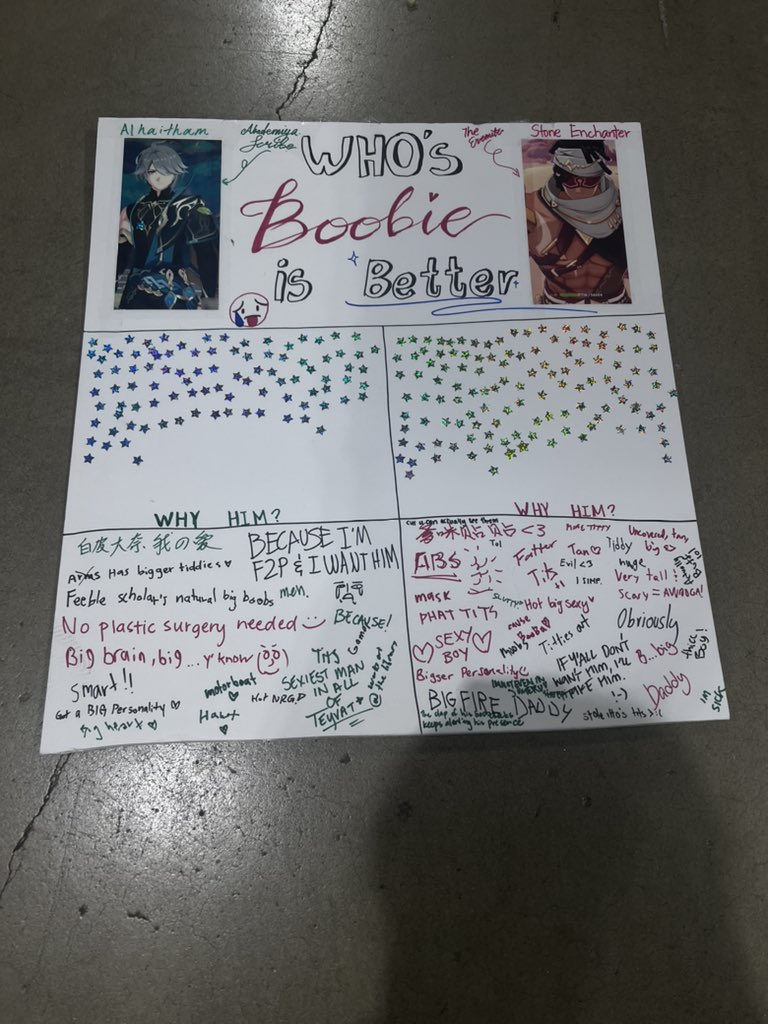 Alhaitham
Akademiya
Scribe
WHO'S
Boobie
is Better
The
Eremite
Stone Enchanter
WHY HIM?
白皮大奈 我の爱
BECAUSE I'M
F2P & I WANT HIM
Has bigger tiddies
Feeble scholar's natural big boobs
men.
No plastic surgery needed
BECAUSE!
Big brain, big ...y'know
Smart!!
THE
SEXIEST MAN
IN ALL
OF
TEYVAT
motorboat
Hot NRG
Got a BIG Personality
big heart
Hawt
WHY HIM?
cuz u can actually see them
<3
MORE TITTY
Uncovered, tan,
big
ABS
Fatter
Tits
Tan
Tiddy
huge
Evil <3
I SIMP
Very tall!
Scary = AWOOGA!
mask
Hot big sexy
PHAT TITS
cause
Titties out
Obviously
SEXY
BOY
IF Y'ALL DON'T
WANT HIM, I'LL
HIM.
:-)
B...big
thicc
Boy!
Bigger Personality
BIG FIRE DADDY
Daddy
The clap of his
keeps alerting his presence
im
sick